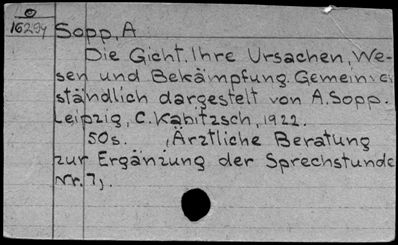 O
16294
Sopp, A
Die Gicht. Ihre Ursachen, We-
sen und Bekämpfung. Gemeinver
ständlich dargestelt von A. Sopp.
Leipzig, C. Kabitzsch, 1922.
50s. (Ärztliche Beratung
zur Ergänzung der Sprechstunde
Nr. 7).